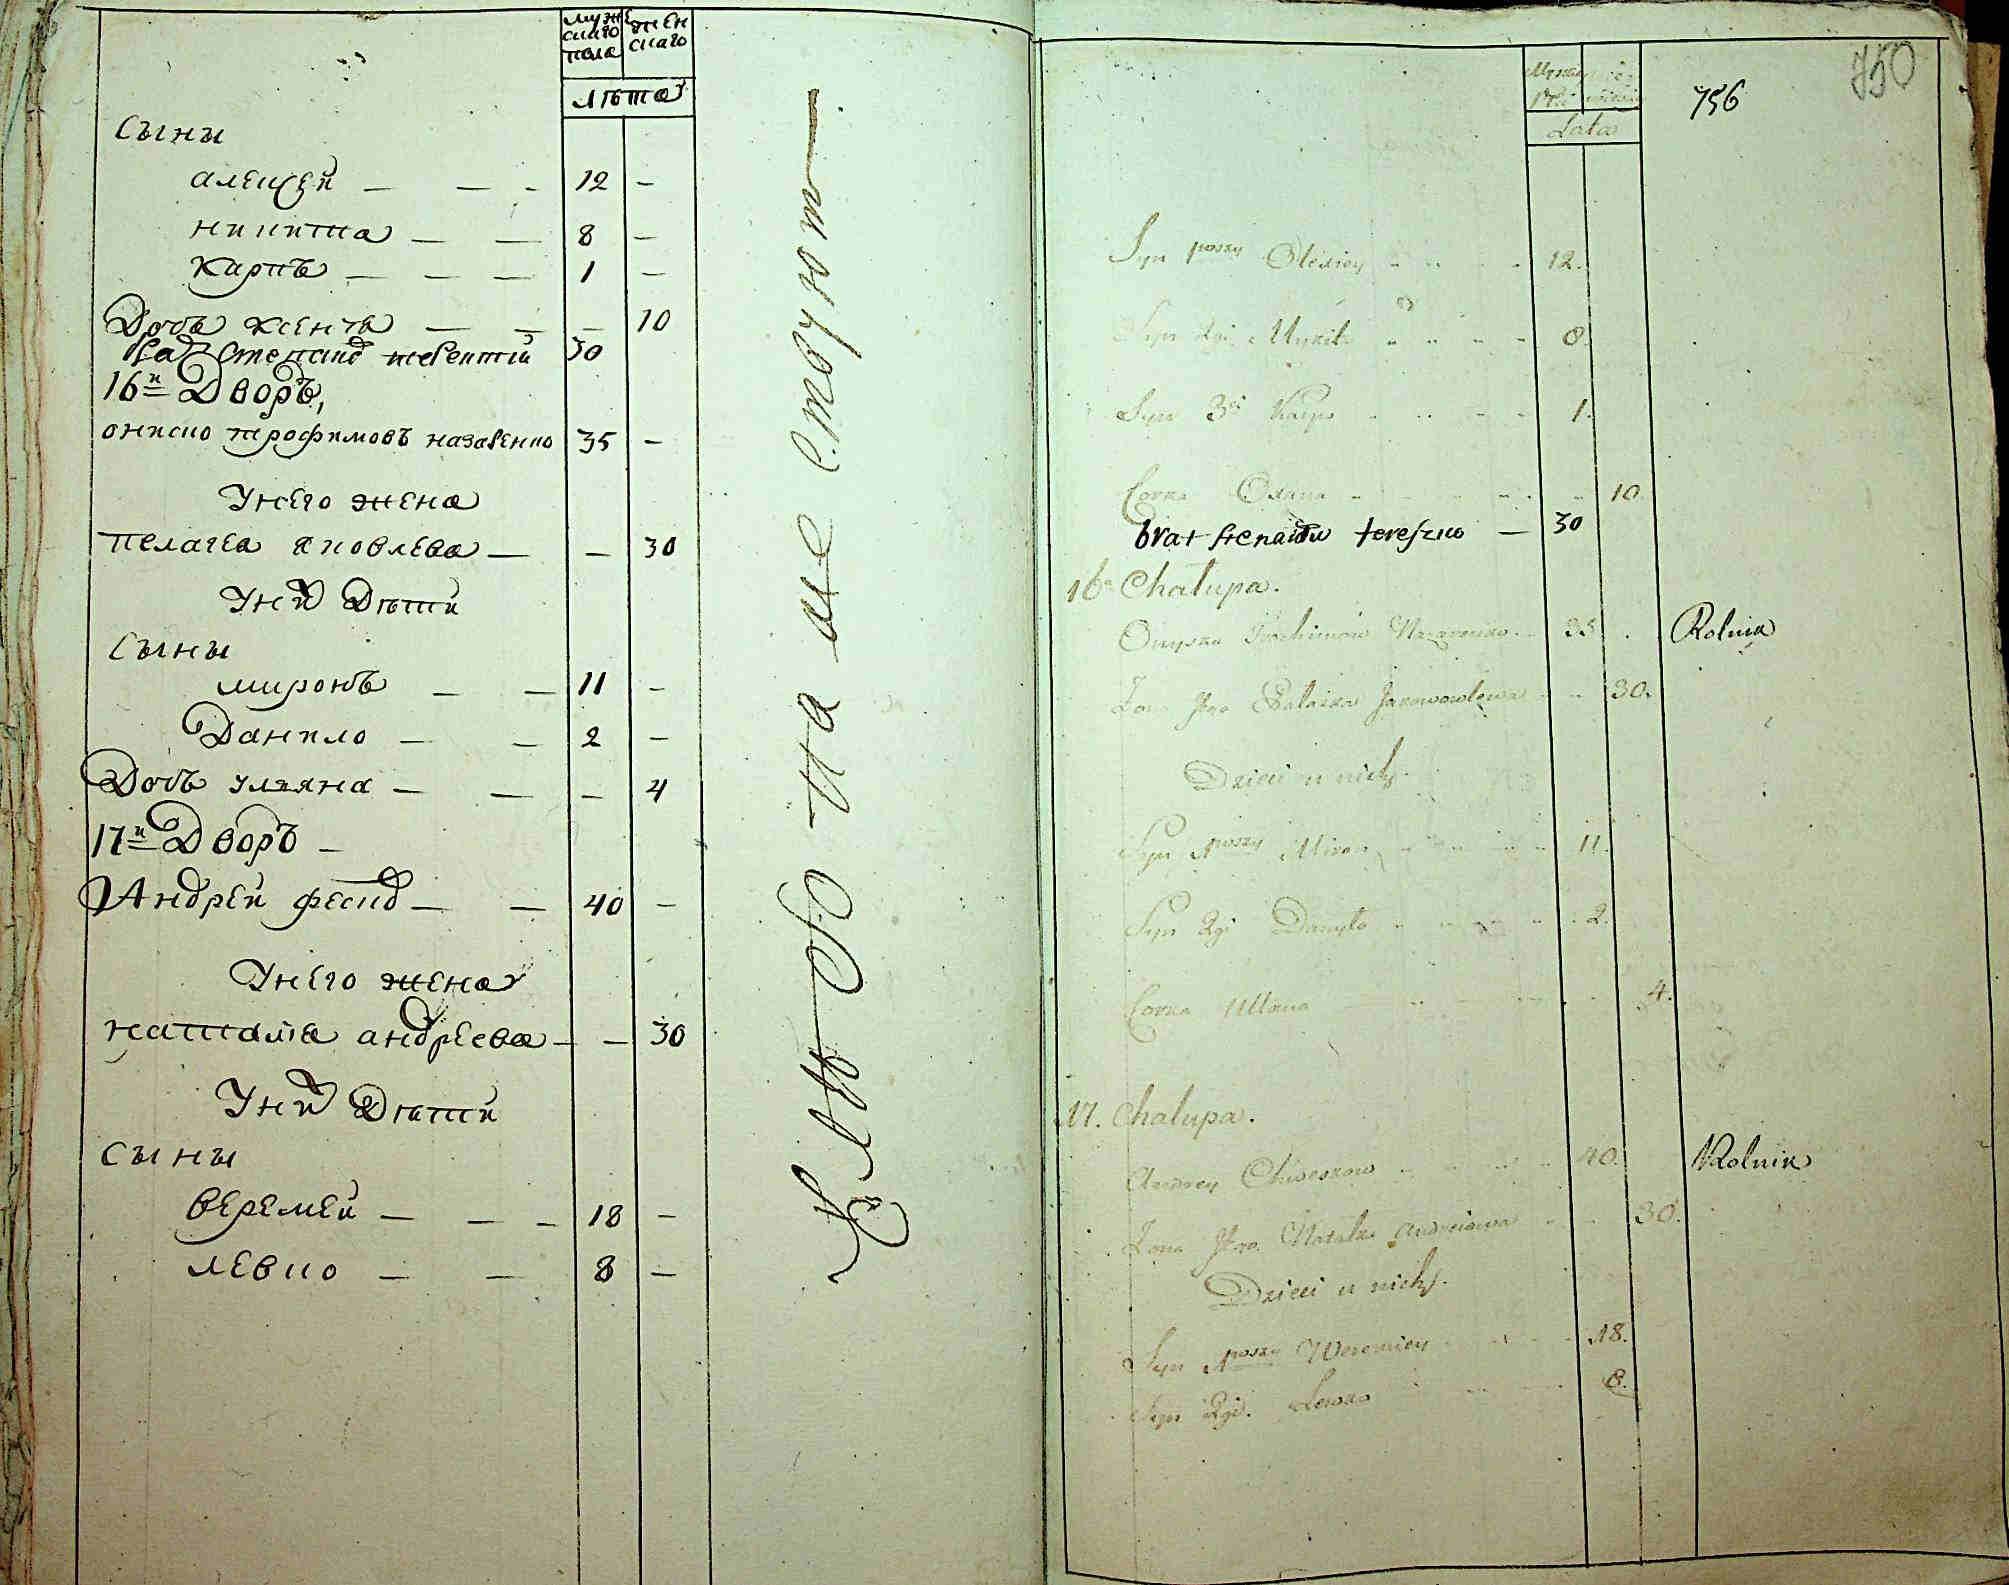 мужескаго пола женскаго
лѣта
Сыны
алексей — — - 12 -
никита — — 8 -
карпъ — — — 1 -
Дочь ксенъя — — — 10
Степанъ терентии 30
16й Дворъ,
ониско трофимовъ назаренко 35 -
Унего жена
пелагея яковлева — — 30
Уних Дѣти
Сыны
миронъ — — 11 -
Данило — — 2 -
Дочь ульяна — — — 4
17й Дворъ —
Андрей — — 40 -
Унего жена
наталия андреева — — 30
Уних Дѣти
Сыны
веремей — — — 18 -
левко — — 8 —
на ме ствуют
750
756
Lata
Syn pierwszy Olexiey 12.
Syn 2gi Mykita 8.
Syn 3ci Karpo 1.
Corka Oxana 10.
brat tereszko — 30
16. Chałupa.
Onysko Trochimow Nazarenko 35 . Rolnik
Zona Jego Pałazka 30.
Dzieci u nich.
Syn pierwszy Miron 11.
Syn 2gi Danyło 2.
Corka Ullana 4.
17. Chałupa.
Andrey 40. Rolnik
Zona Jego Natalka Andreiowa 30.
Dzieci u nich.
Syn pierwszy Weremiey 18.
Syn 2gi. Lewko 8.